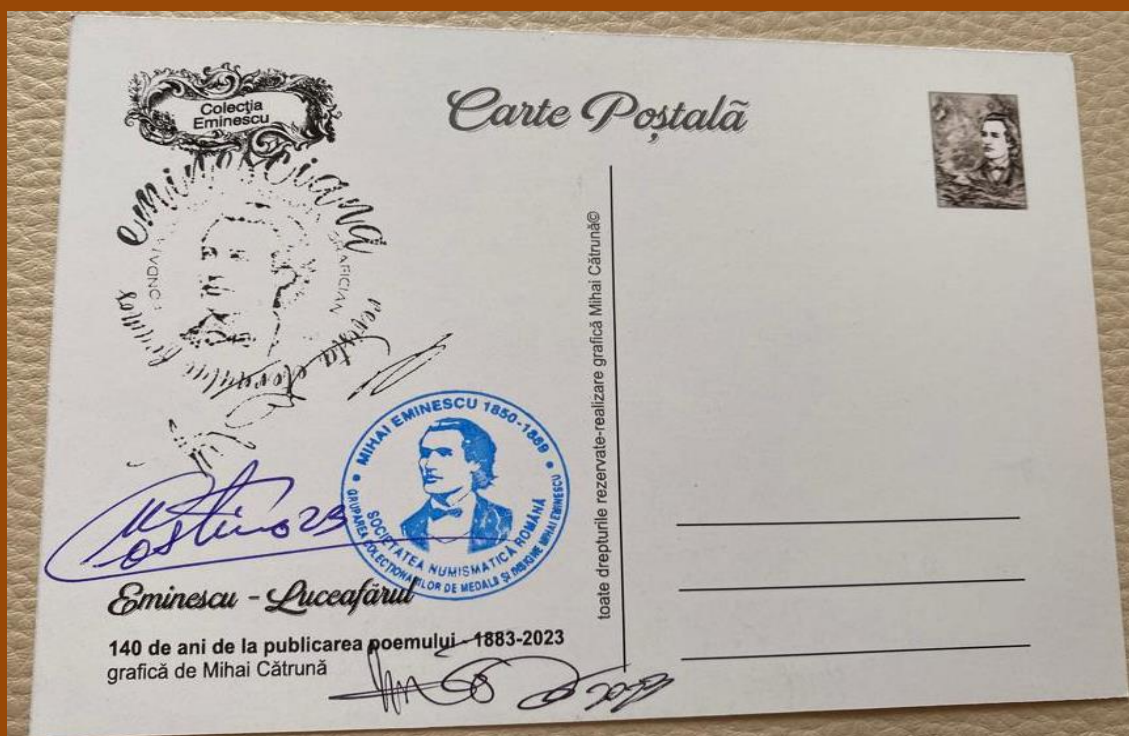 Colecția
Eminescu
Carte Poștală
eminesciana
revista elevului
GRAFICIAN
MIHAI EMINESCU 1850-1889
SOCIETATEA NUMISMATICĂ ROMÂNĂ
GRUPAREA COLECȚIONARILOR DE MEDALII ȘI INSIGNE MIHAI EMINESCU
Eminescu - Luceafărul
140 de ani de la publicarea poemului - 1883-2023
grafică de Mihai Cătrună
toate drepturile rezervate-realizare grafică Mihai Cătrună©